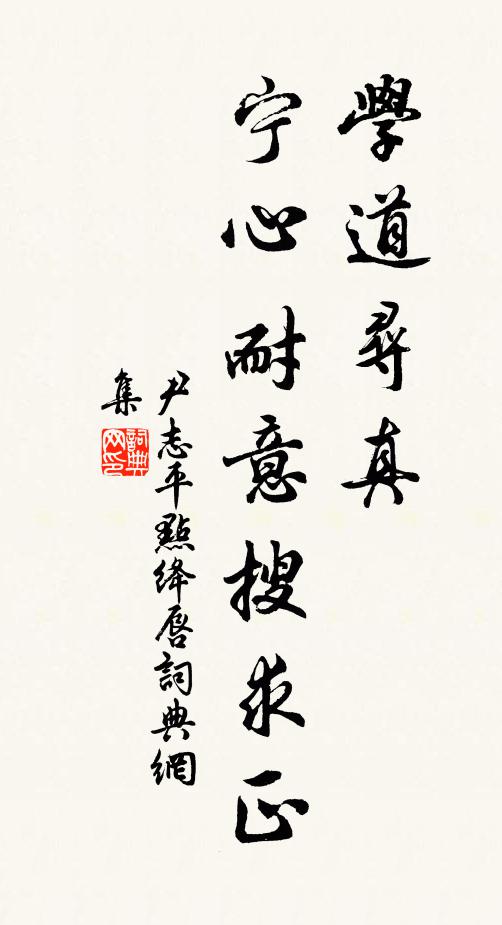 學道尋真
宁心耐意搜求正
尹志平點绛唇詞典網
集
詞典网印